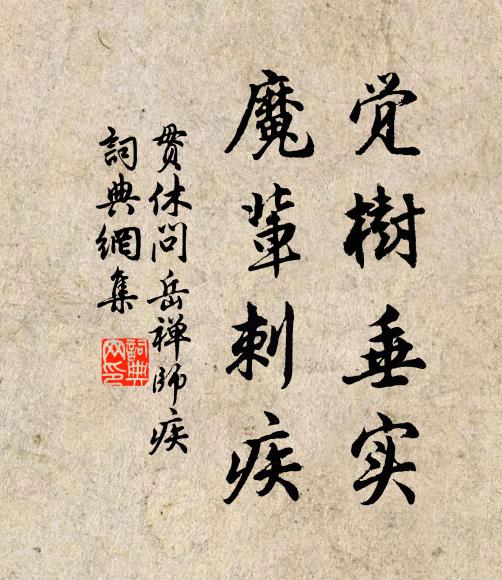 覚樹垂实
魔輩刺疾
贯休问岳禅師疾
詞典網集
詞典
网印